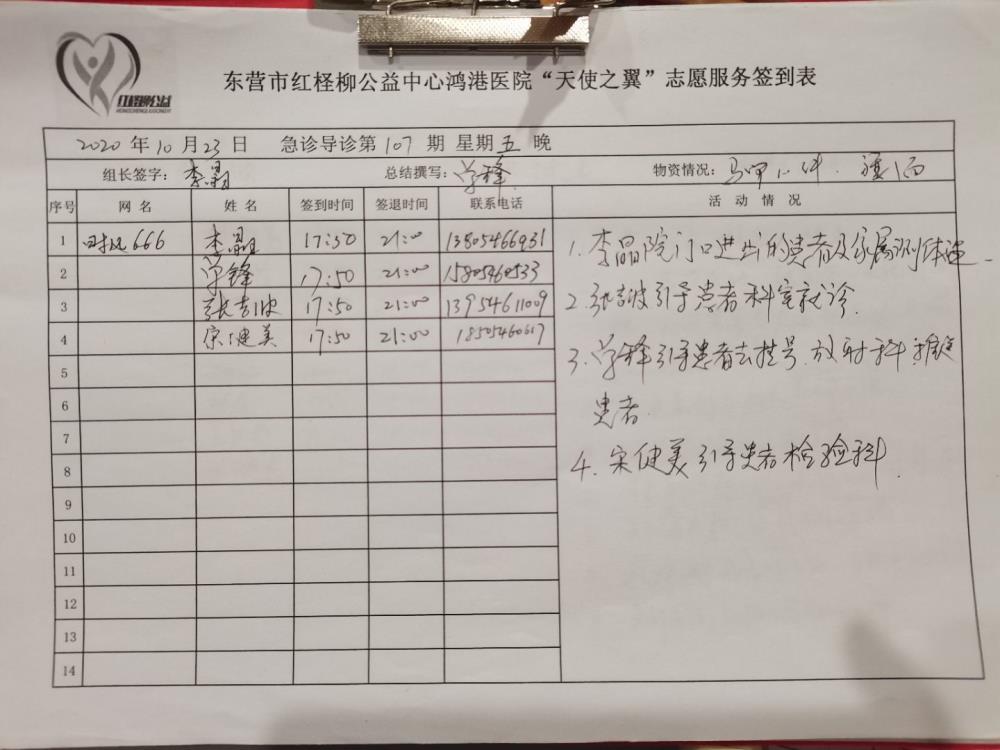 红柽柳公益
东营市红柽柳公益中心鸿港医院“天使之翼”志愿服务签到表
2020 年 10 月 23 日 急诊导诊第 107 期 星期 五 晚
组长签字: 李晶 总结撰写: 学锋 物资情况:
序号 网名 姓名 签到时间 签退时间 联系电话 活动情况
1 666 李晶 17:50 21:00 13805466931
2 学锋 17:50 21:00 15805460533
3 张吉波 17:50 21:00 13954611009
4 宋健美 17:50 21:00 18505460617
5
6
7
8
9
10
11
12
13
14
1. 李晶院门口进出的患者及家属测体温.
2. 张吉波引导患者科室就诊.
3. 学锋引导患者去挂号.放射科.推送
患者.
4. 宋健美引导患者检验科.